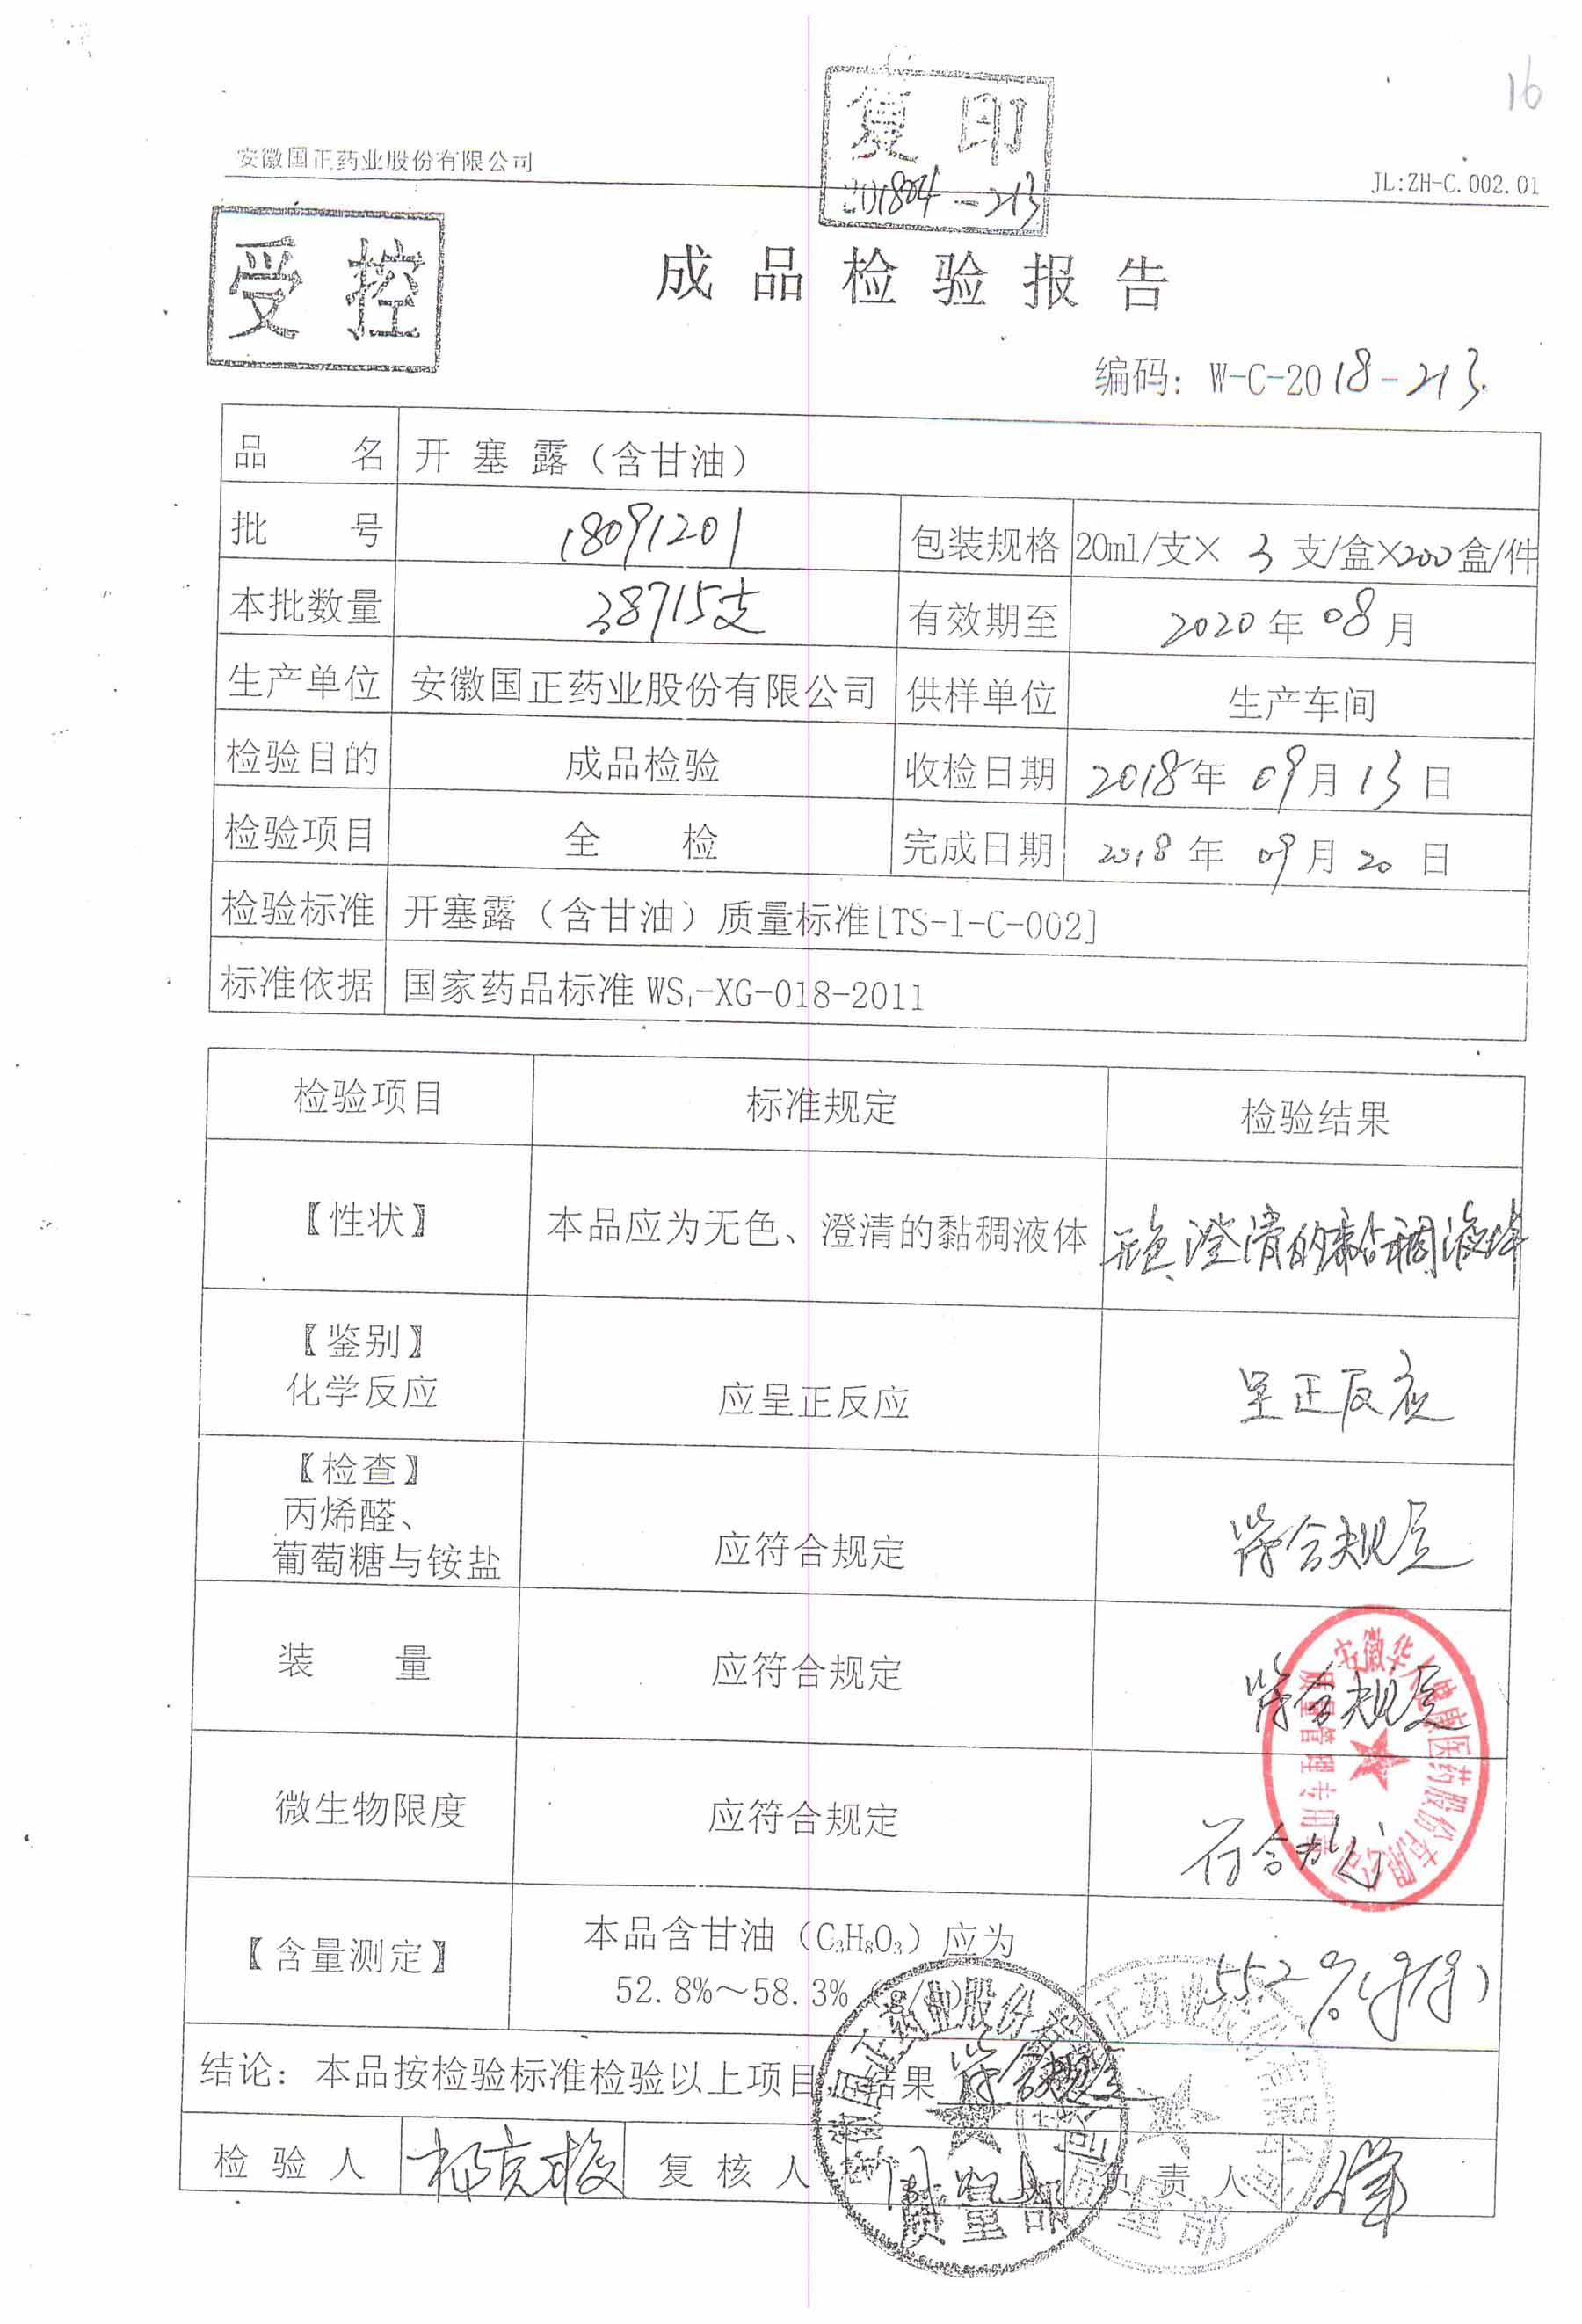 16
复印
201804-213
安徽国正药业股份有限公司
JL:ZH-C.002.01
受控
成品检验报告
编码：W-C-2018-213
品 名 开塞露（含甘油）
批 号 18091201 包装规格 20ml/支× 3 支/盒×200盒/件
本批数量 38715支 有效期至 2020年08月
生产单位 安徽国正药业股份有限公司 供样单位 生产车间
检验目的 成品检验 收检日期 2018年09月13日
检验项目 全 检 完成日期 2018年09月20日
检验标准 开塞露（含甘油）质量标准[TS-1-C-002]
标准依据 国家药品标准 WS₁-XG-018-2011
检验项目 标准规定 检验结果
【性状】 本品应为无色、澄清的黏稠液体 无色、澄清的黏稠液体
【鉴别】
化学反应 应呈正反应 呈正反应
【检查】
丙烯醛、
葡萄糖与铵盐 应符合规定 符合规定
装 量 应符合规定 符合规定
安徽华人健康医药股份有限公司
质量管理专用章
微生物限度 应符合规定 符合规定
【含量测定】 本品含甘油（C₃H₈O₃）应为
52.8%～58.3% 55.2%(g/g)
结论：本品按检验标准检验以上项目，结果 符合规定
检验人 复核人 负责人
质量部